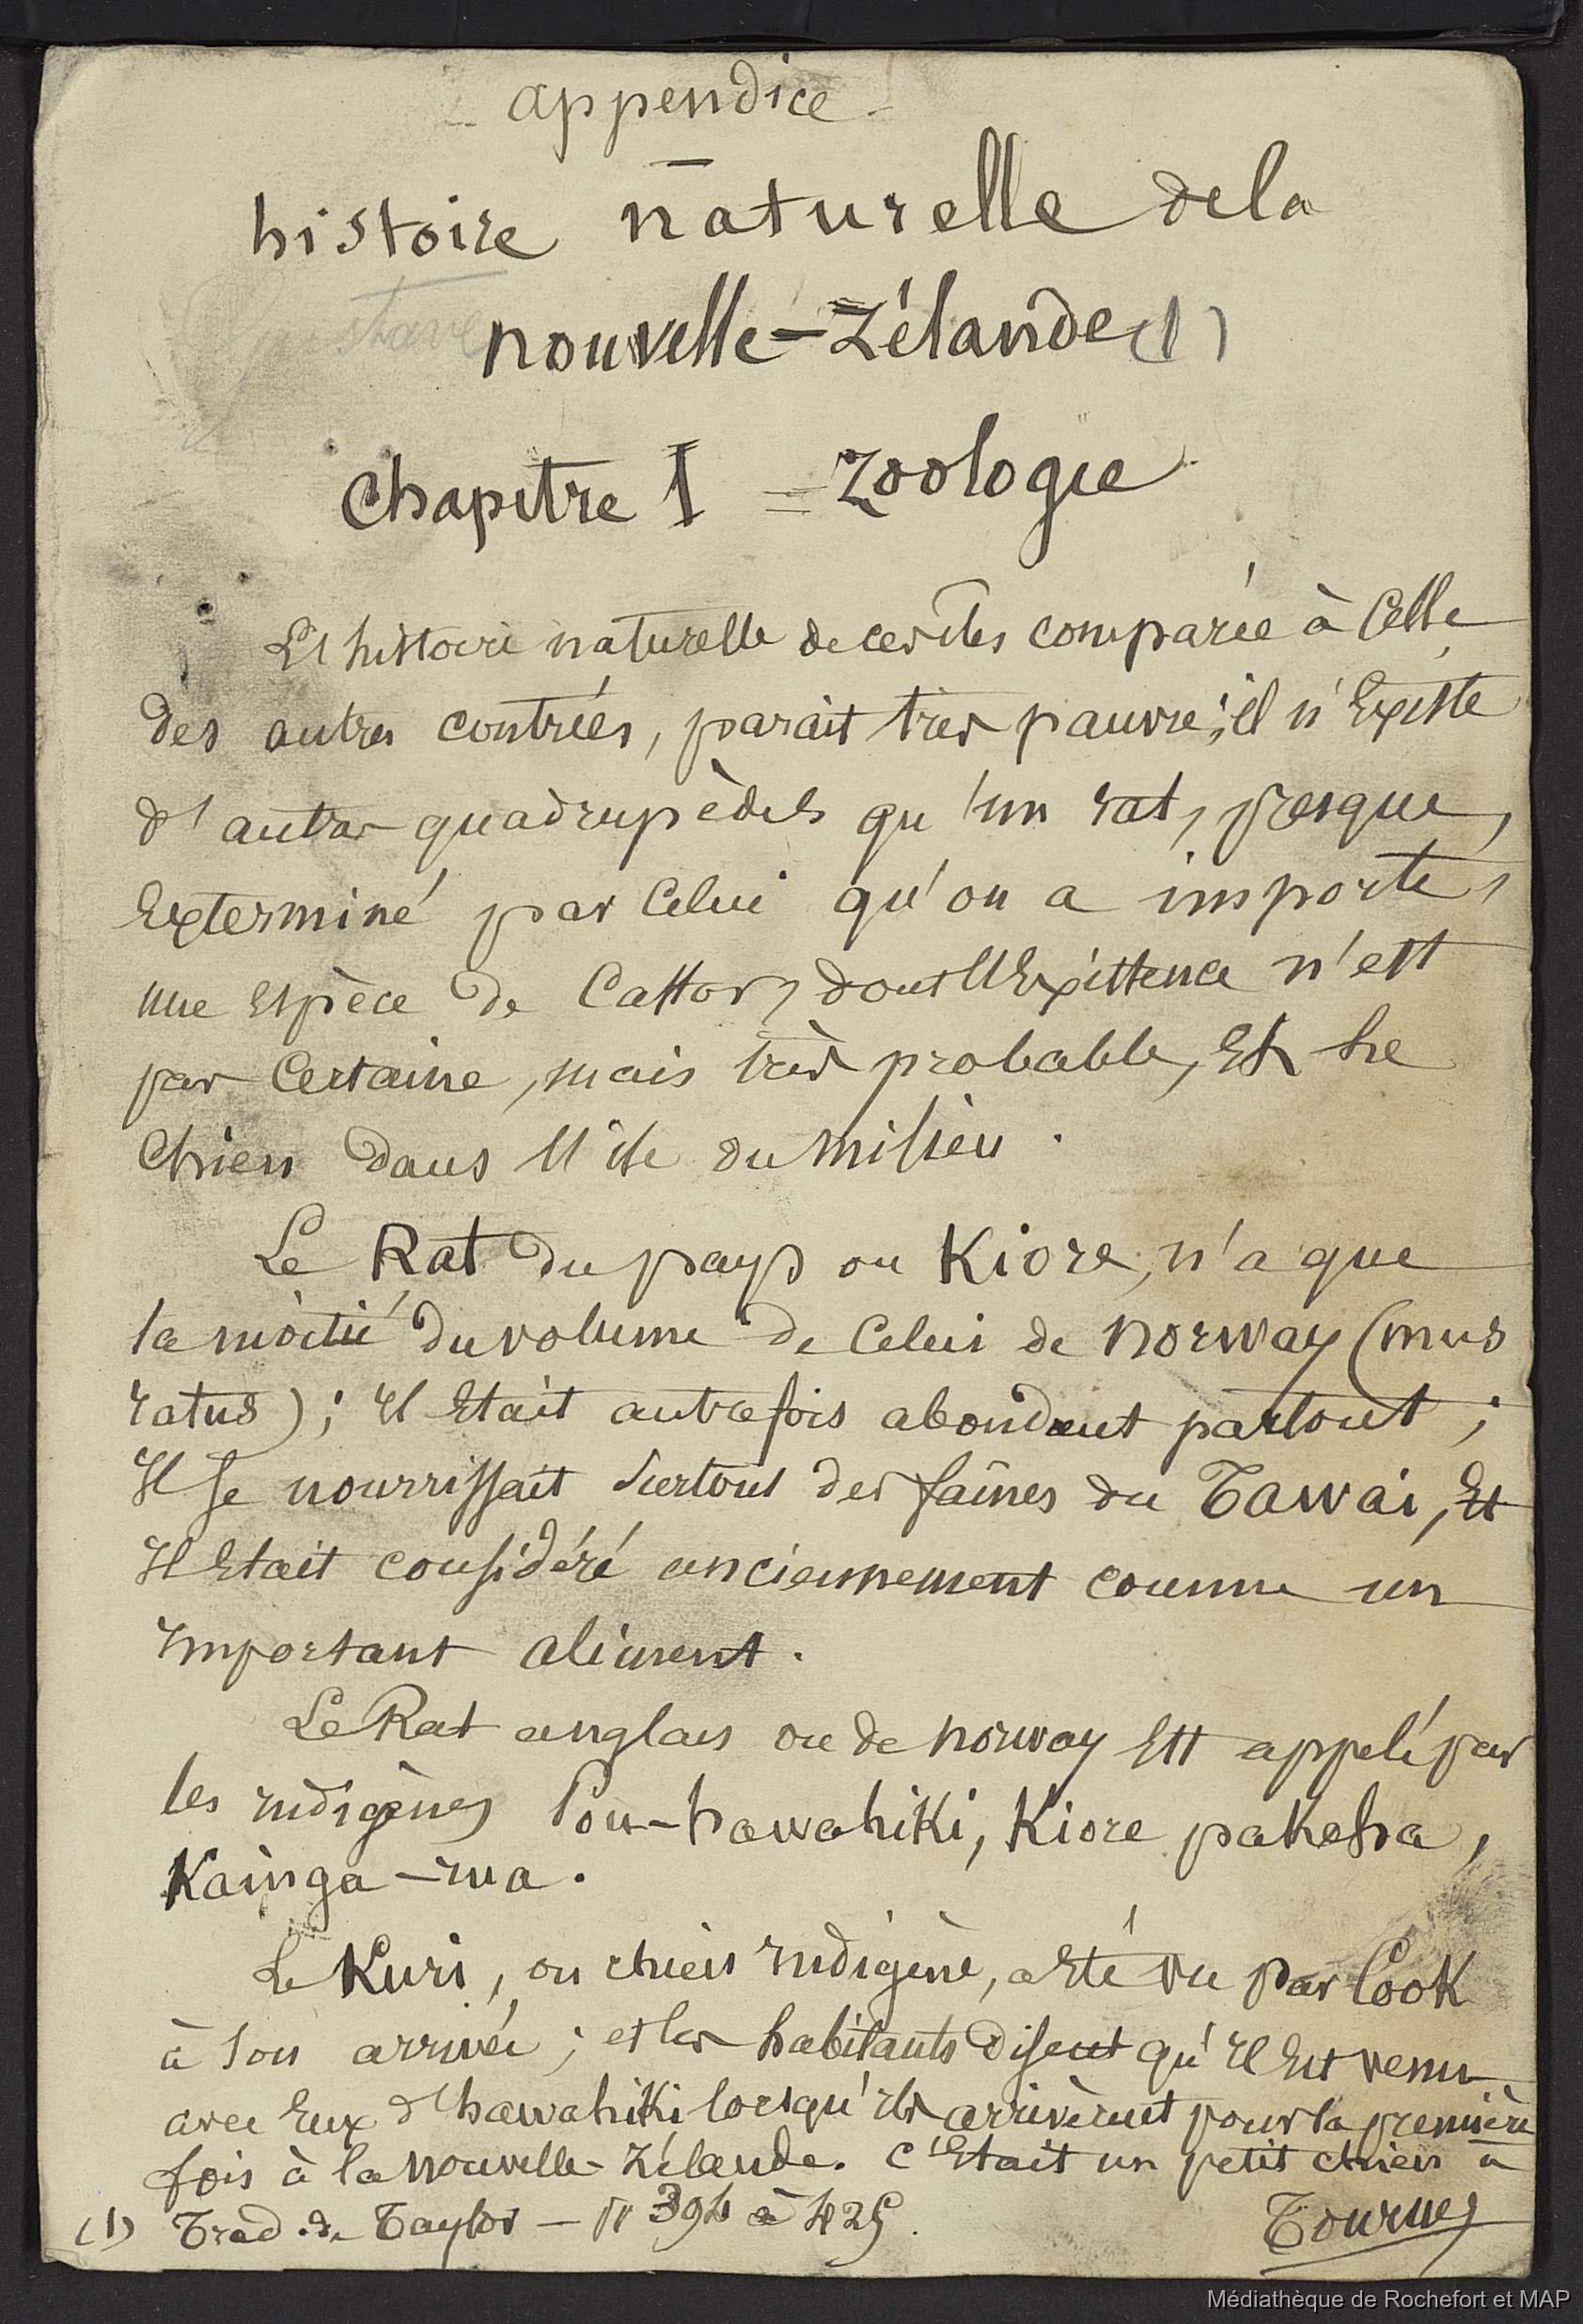 appendice
histoire naturelle de la
nouvelle-Zélande (1)
Chapitre I = Zoologie
L'histoire naturelle de ces îles comparée à Celle
des autres contrées, parait très pauvre; il n'Existe
d'autres quadrupèdes qu'un rat, presque
Exterminé par Celui qu'on a importé,
une Espèce de Castor, dont l'Existence n'est
pas Certaine, mais très probable, Et le
Chien dans l'île du milieu.
Le Rat du pays ou Kiore, n'a que
la moitié du volume de Celui de norway (mus
ratus); Il Etait autrefois abondant partout;
Il se nourrissait surtout des faînes du Tawai, Et
Il Etait considéré anciennement comme un
Important aliment.
Le Rat anglais ou de norway Est appelé par
les Indigènes Pou-hawahiki, Kiore pakeha,
Kainga-rua.
Le Kuri, ou chien Indigène, a Eté vu par Cook
à son arrivée; et les habitants disent qu'Il Est venu
avec Eux d'hawahiki lorsqu'ils arrivèrent pour la première
fois à la nouvelle-Zélande. C'Etait un petit chien à
(1) Trad. de Taylor — 394 à 425. Tournez
Médiathèque de Rochefort et MAP